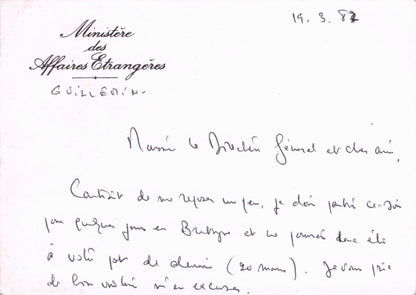 19.3.82
Ministère
des
Affaires Etrangères
GUILLEMIN.
Monsieur le Directeur Général et cher ami,
Contraint de me reposer un peu, je dois partir ce soir
pour quelques jours en Bretagne et ne pourrai donc être
à votre pot de demain (20 mars). Je vous prie
de bien vouloir m'en excuser.